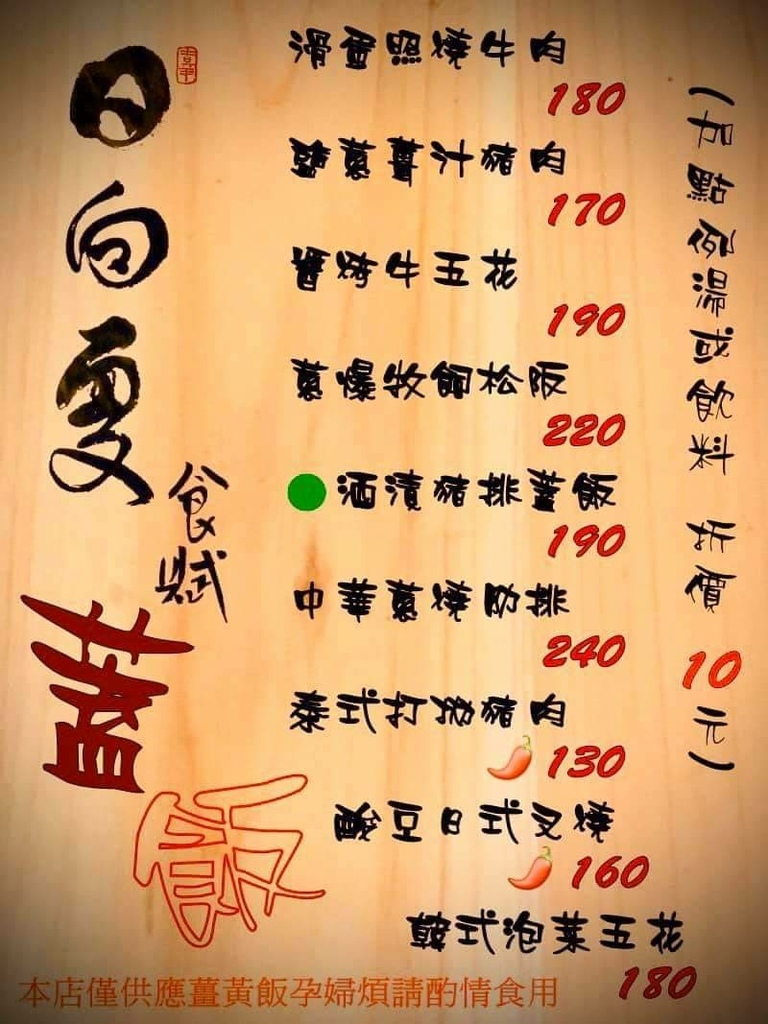 日向夏
食賦
蓋
飯
滑蛋照燒牛肉
180
鹽蔥薑汁豬肉
170
醬烤牛五花
190
蔥爆牧飼松阪
220
酒漬豬排蓋飯
190
中華蔥燒肋排
240
泰式打拋豬肉
130
酸豆日式叉燒
160
韓式泡菜五花
180
(加點例湯或飲料 折價10元)
本店僅供應薑黃飯孕婦煩請酌情食用